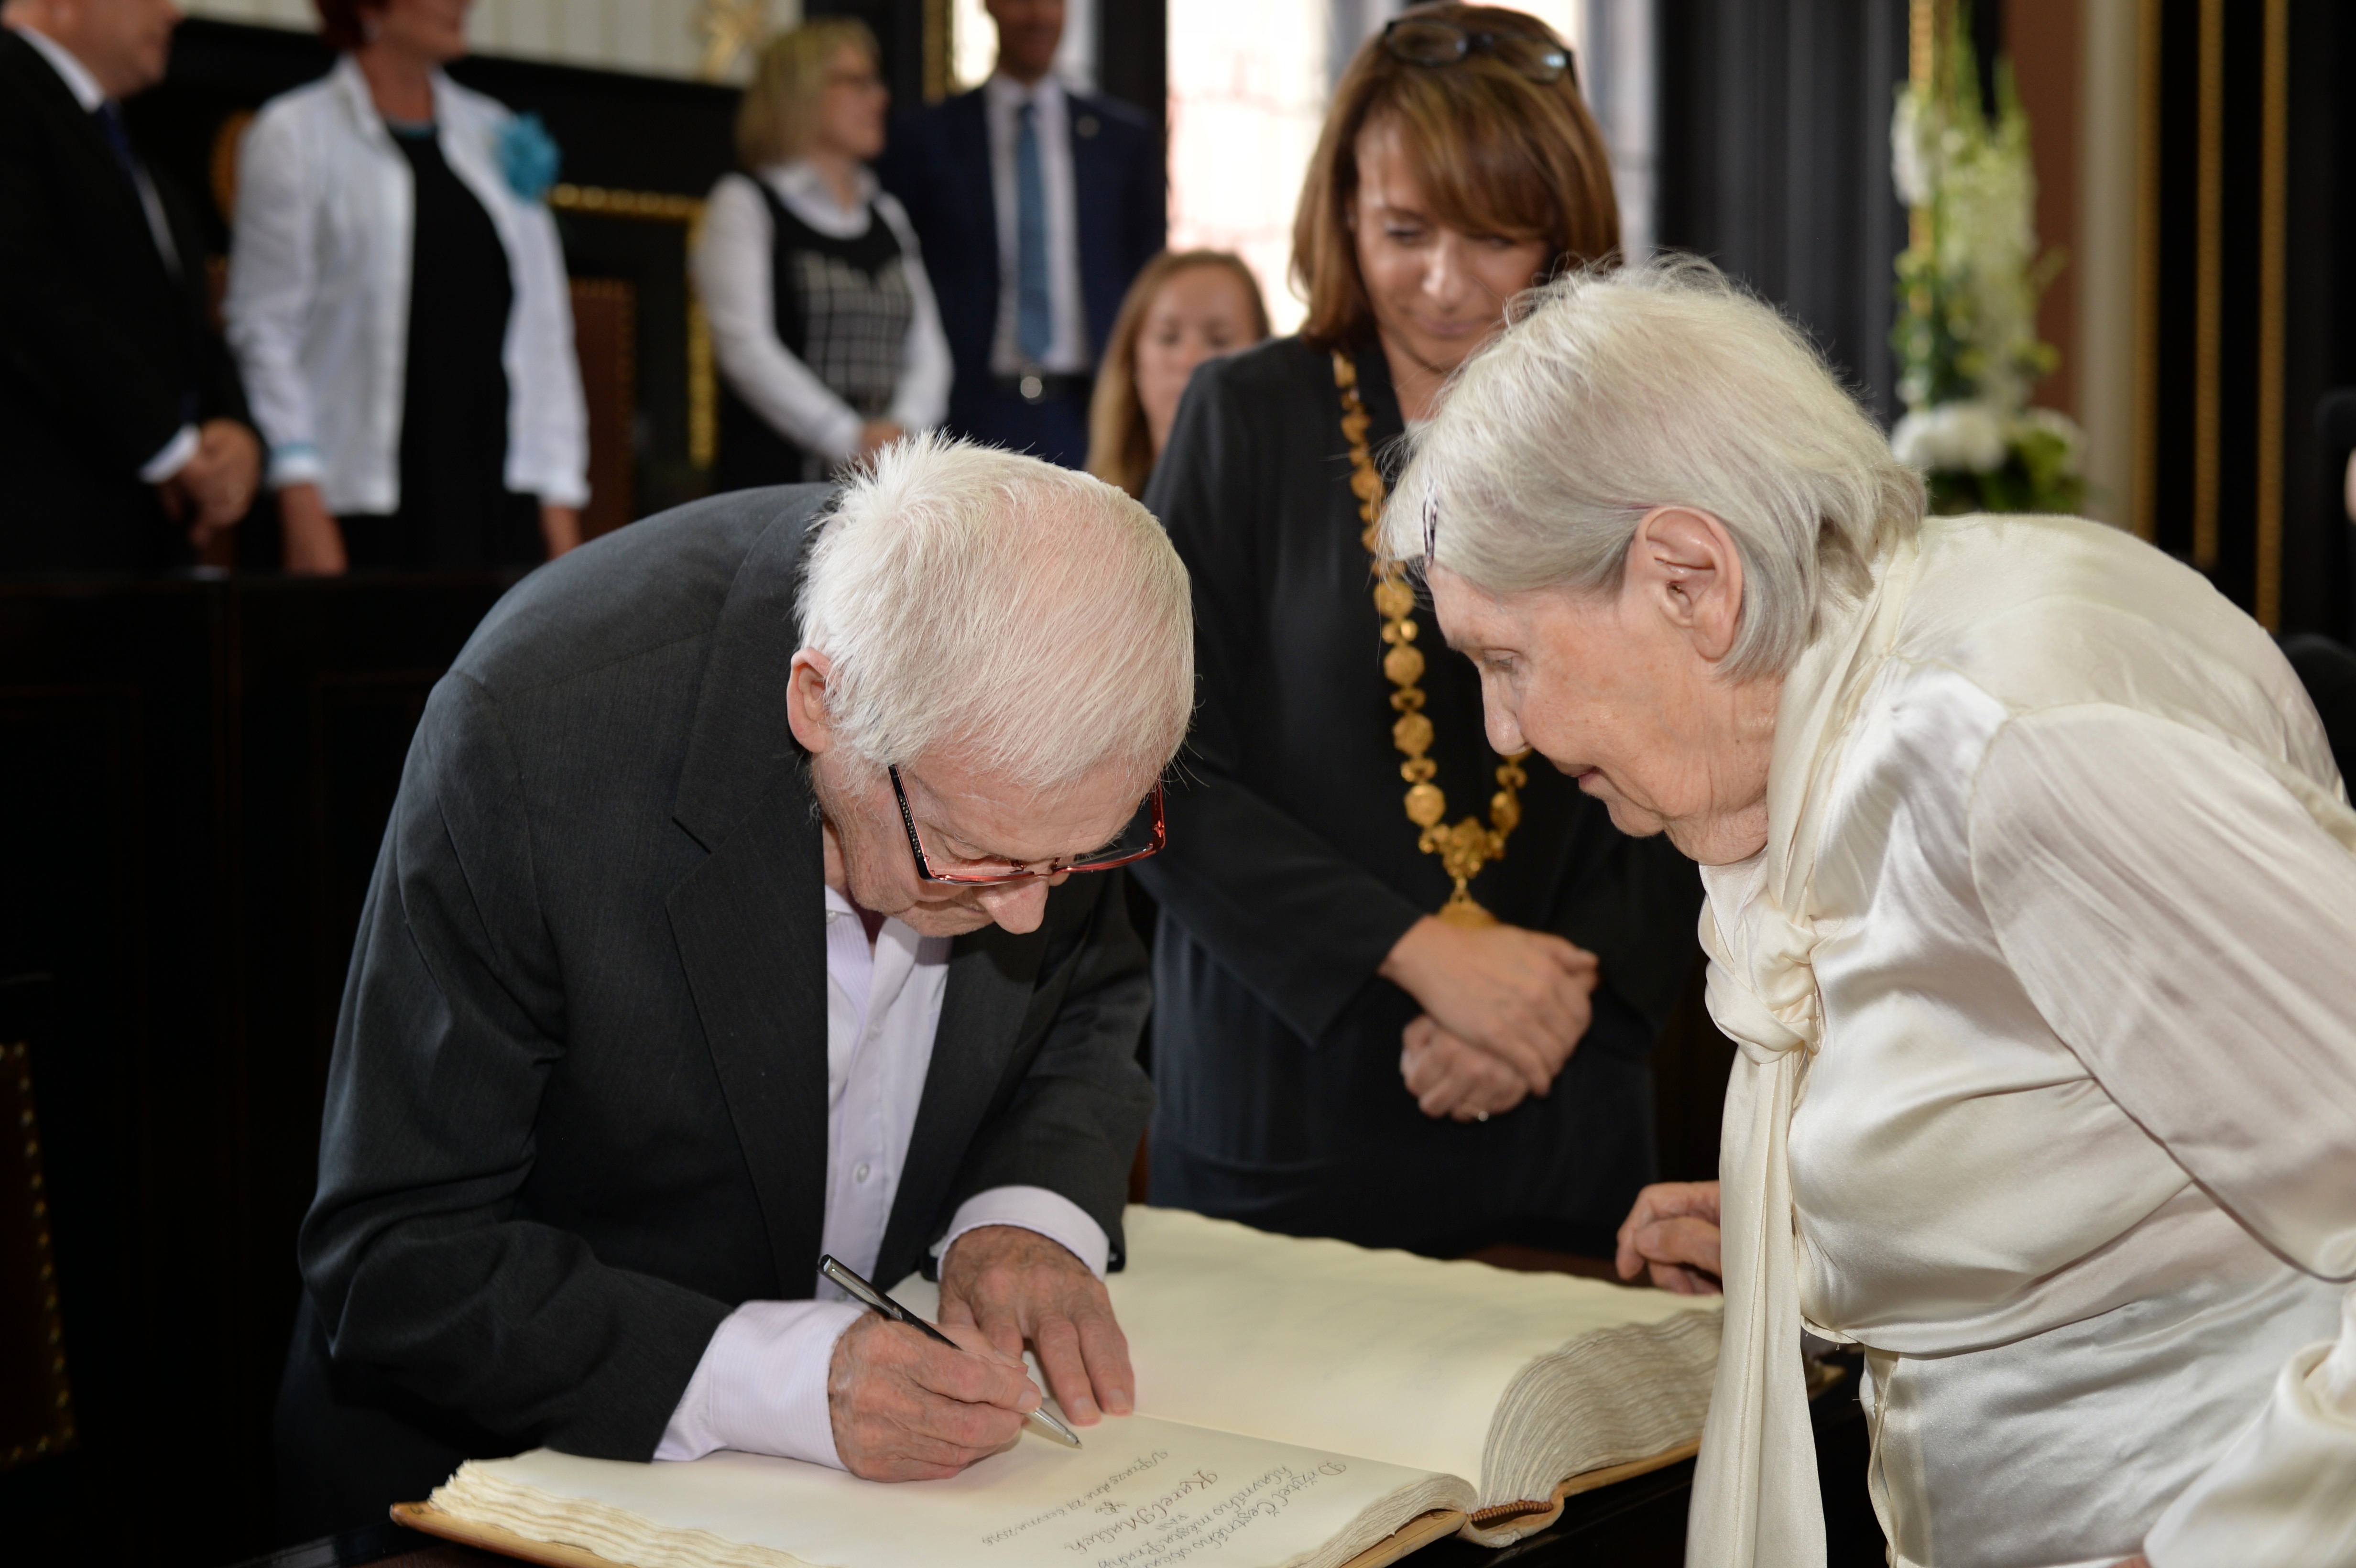 Držitel Čestného občan
hlavního města Prahy
PAN
Karel Malich
V Praze dne 27 června 2016